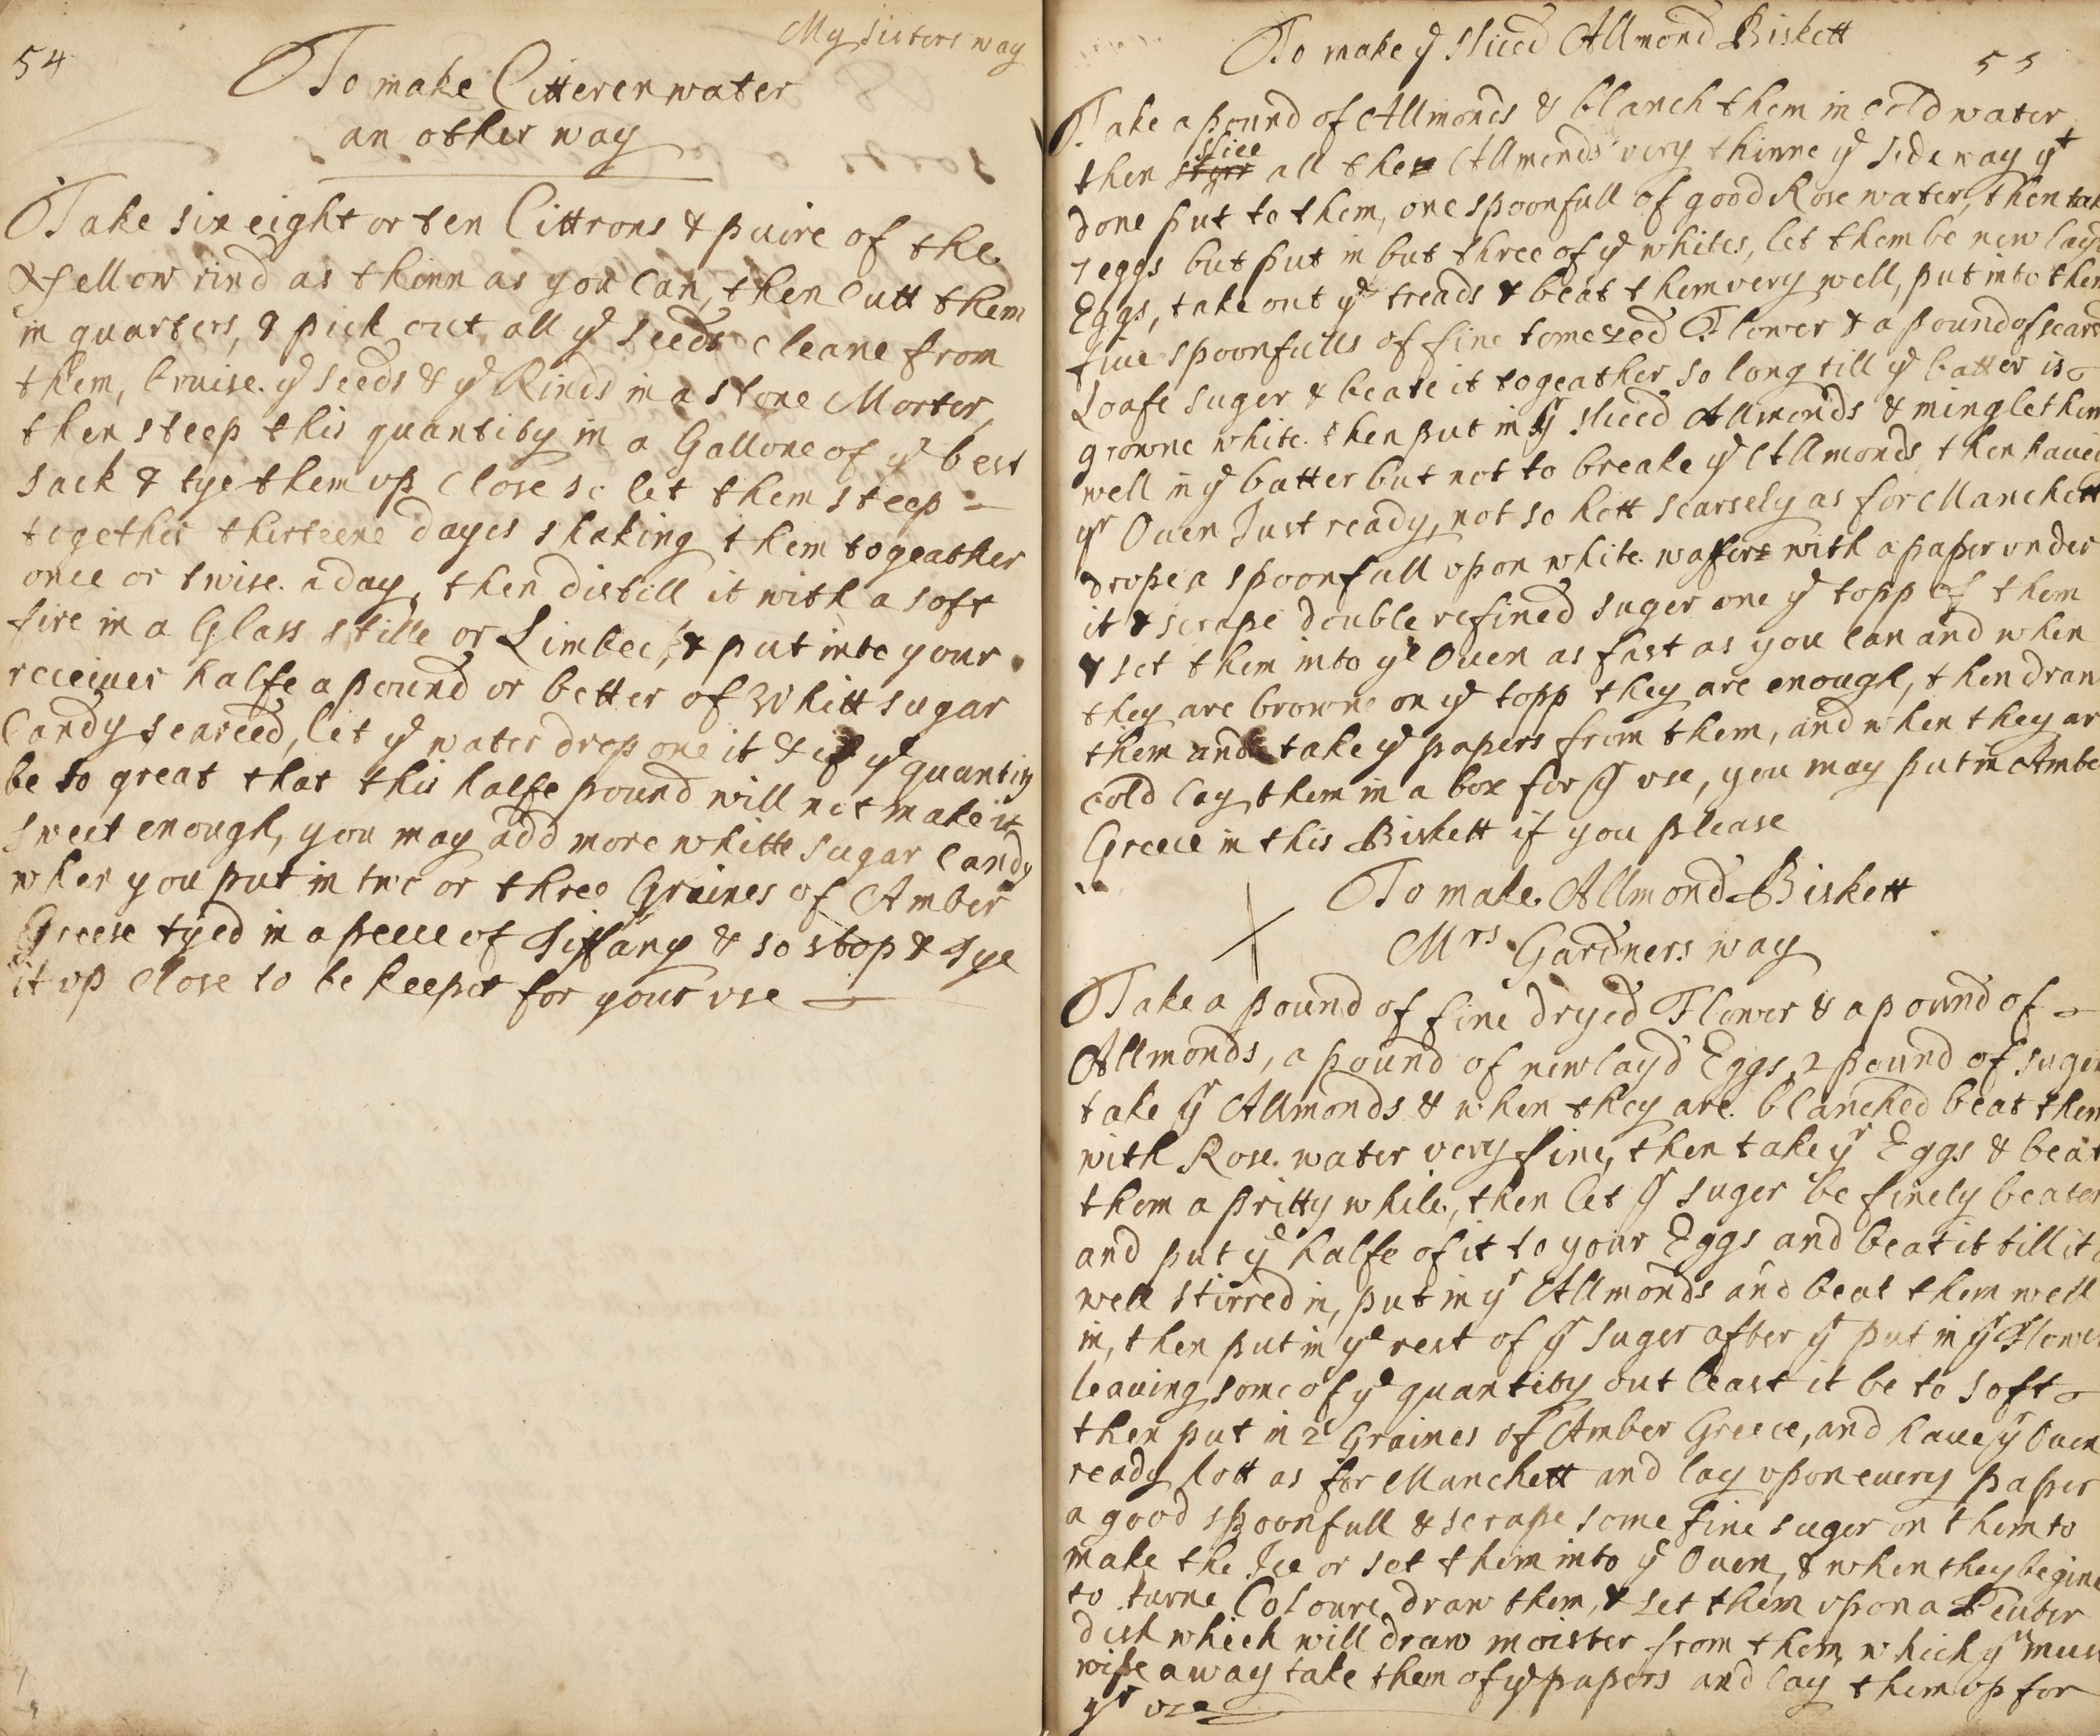 54
My sisters way
To make Citteren water
an other way
Take six eight or ten Cittrons & paire of the
yellow rind as thinn as you can, then Cutt them
in quarters, & pick out all ye seeds cleane from
them, bruise ye seeds & ye Rinds in a stone Morter,
then steep this quantity in a Gallone of ye best
sack & tye them up Close so let them steep
together thirteene dayes shaking them togeather
once or twise a day, then distill it with a soft
fire in a Glass stille or Limbeck, & put into your
receiuer halfe a pound or better of Whitt sugar
Candy searced, let ye water drop one it & if ye quantity
be so great that this halfe pound will not make it
sweet enough, you may add more whitte sugar Candy
when you put in two or three Graines of Amber
Greese tyed in a peece of Tiffany & so stop & tye
it vp Close to be keept for your vse
55
To make ye sliced Allmond Biskett
Take a pound of Allmonds & blanch them in cold water
then slice all the Allmonds very thinne ye side way yt
done put to them, one spoonfull of good Rose water, then tak
7 eggs but put in but three of ye whites, let them be new layd
Eggs, take out ye treads & beat them very well, put into them
fiue spoonfulls of fine Flower & a pound of sears
Loafe suger & beate it togeather so long till ye batter is
growne white then put in yr sliced Allmonds & mingle them
well in ye batter but not to breake ye Allmonds then haue
yr Ouen Just ready, not so hott scarsely as for Manchett
drope a spoonfull vpon white wafers with a paper vnder
it & scrape double refined suger one ye topp of them
& set them into ye Ouen as fast as you can and when
they are browne on ye topp they are enough, then draw
them and take ye papers from them, and when they ar
cold lay them in a box for yr vse, you may put in Amber
Greece in this Biskett if you please
To make Allmond Biskett
Mrs Gardners way
Take a pound of fine dryed Flower & a pound of
Allmonds, a pound of new layd Eggs, 2 pound of suger
take yr Allmonds & when they are blanched beat them
with Rose water very fine, then take yr Eggs & beat
them a pritty while, then let yr suger be finely beaten
and put ye halfe of it to your Eggs and beat it till it
well stirred in, put in yr Allmonds and beat them well
in, then put in ye rest of yr suger after yt put in yr Flower
leauing some of ye quantity out least it be to soft
then put in 2 Graines of Amber Greece, and haue yr Ouen
ready hott as for Manchett and lay vpon euery paper
a good spoonfull & scrape some fine suger on them to
make the Ice or set them into ye Ouen, & when they begine
to turne Coloure draw them, & set them vpon a Peuter
dish which will draw moister from them, which yu must
wipe away take them of ye papers and lay them vp for
yr vse